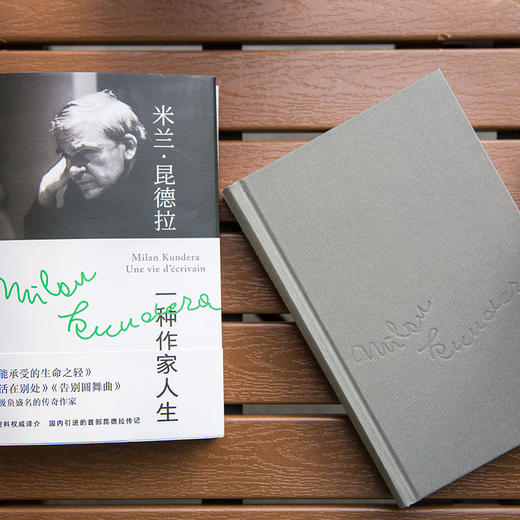 米兰·昆德拉
Milan Kundera
Une vie d'écrivain
Milan
Kundera
一种作家人生
能承受的生命之轻》
活在别处》《告别圆舞曲》
极负盛名的传奇作家
资料权威译介 国内引进的首部昆德拉传记
Milan
Kundera